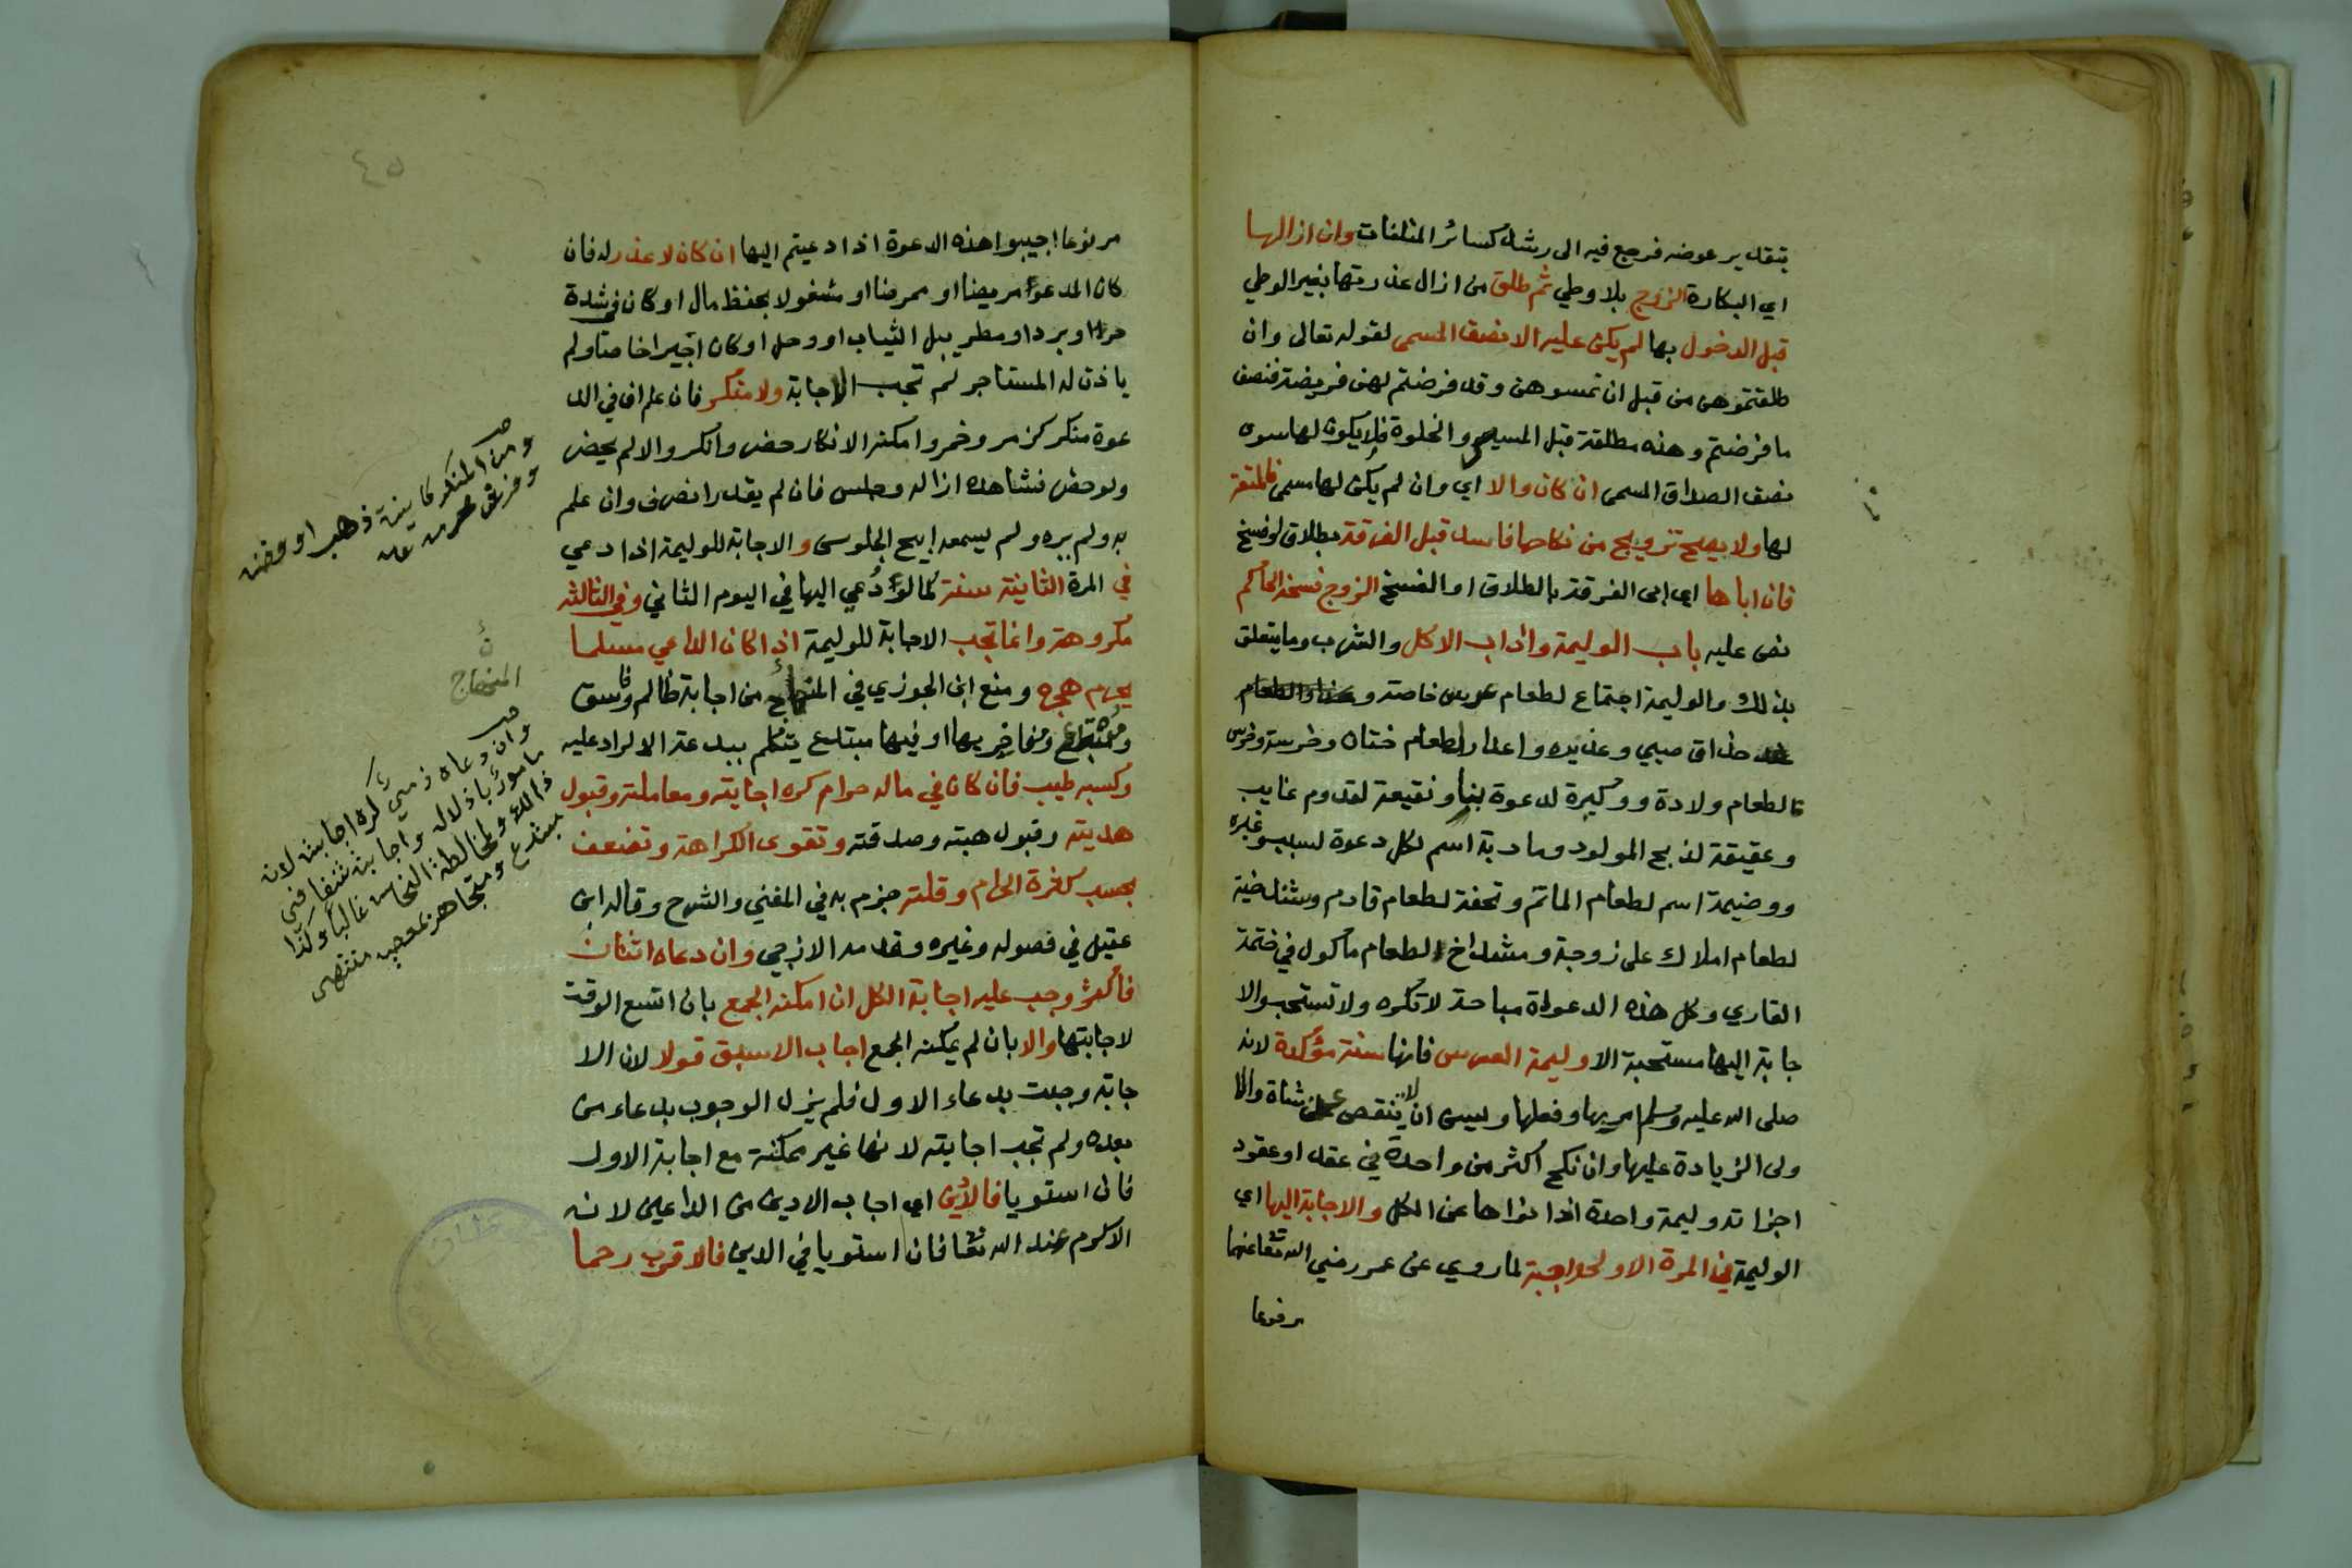 بتقدير عوضه فرجع فيه الى رشد كسائر المتلفات وان ازالها
اي البكارة الزوج بلا وطي ثم طلق من ازال عذرتها بغير الوطي
قبل الدخول بها لم يكن عليه الا نصف المسمى لقوله تعالى وان
طلقتموهن من قبل ان تمسوهن وقد فرضتم لهن فريضة فنصف
ما فرضتم وهذه مطلقة قبل المسيس والخلوة فلا يكون لها سوى
نصف الصداق المسمى ان كان والا اي وان لم يكن لها مسمى فالمتعة
لها ولا يصح تزويج من نكاحها فاسد قبل الفرقة بطلاق او فسخ
فان اباها اي ابى الفرقة بالطلاق او الفسخ الزوج فسخه الحاكم
نص عليه باب الوليمة واداب الاكل والشرب وما يتعلق
بذلك والوليمة اجتماع لطعام عرس خاصة و
حذاق صبي وعذيره واعذار لطعام ختان وخرسة وخرس
لطعام ولادة ووكيرة لدعوة بناء ونقيعة لقدوم غايب
وعقيقة لذبح المولود ومادبة اسم لكل دعوة لسبب وغيره
ووضيمة اسم لطعام الماتم وتحفة لطعام قادم وشندخية
لطعام املاك على زوجة ومشداخ لطعام ماكول في ختمة
القاري وكل هذه الدعواة مباحة لا تكره ولا تستحب والا
جابة اليها مستحبة الا وليمة العرس فانها سنة مؤكدة لانه
صلى الله عليه وسلم امر بها وفعلها ويسن ان لا تنقص عن شاة والا
ولى الزيادة عليها وان نكح اكثر من واحدة في عقد او عقود
اجزاته وليمة واحدة اذا نواها عن الكل والاجابة اليها اي
الوليمة في المرة الاولى واجبة لما روي عن عمر رضي الله تعا عنهما
مرفوعا
٤٥
مرفوعا اجيبوا هذه الدعوة اذا دعيتم اليها ان كان لا عذر له فان
كان المدعو مريضا او ممرضا او مشغولا بحفظ مال او كان في شدة
حر او برد او مطر يبل الثياب او وحل او كان اجيرا خاصا ولم
ياذن له المستاجر لم تجب الاجابة ولا منكر فان علم ان في الد
عوة منكر كزمر وخمر وامكنه الانكار حضر وانكر والا لم يحضر
ولو حضر فشاهده ازاله وجلس فان لم يقدر انصرف وان علم
به ولم يره ولم يسمعه ابيح الجلوس والاجابة للوليمة اذا دعي
في المرة الثانية سنة كما لو دُعي اليها في اليوم الثاني وفي الثالثه
مكروهة وانما تجب الاجابة للوليمة اذا كان الداعي مسلما
يحرم هجره ومنع ابن الجوزي في المنهاج من اجابة ظالم وفاسق
ومبتدع ومفاخر بها او فيها مبتدع يتكلم ببدعته الا لراد عليه
وكسبه طيب فان كان في ماله حرام كره اجابته ومعاملته وقبول
هديته وقبول هبته وصدقته وتقوى الكراهة وتضعف
بحسب كثرة الحرام وقلته جزم به في المغني والشرح وقاله ابن
عقيل في فصوله وغيره وقدمه الازجي وان دعاه اثنان
فاكثر وجب عليه اجابة الكل ان امكنه الجمع بان اتسع الوقت
لاجابتها والا بان لم يمكنه الجمع اجاب الاسبق قولا لان الا
جابة وجبت بدعاء الاول فلم يزل الوجوب بدعاء من
بعده ولم تجب اجابته لانها غير ممكنة مع اجابة الاول
فان استويا فالادين اي اجاب الادين من الداعيين لانه
الاكرم عند الله تعا فان استويا في الدين فالاقرب رحما
ومن المنكر كانية ذهب او فضة
وفرش محرمة
المنهاج
وان دعاه ذمي كره اجابته لانه
مامور باذلاله واجابته تنافي
ذالك ولمخالطة النجاسة غالبا وكذا
مبتدع ومتجاهر بمعصية منتهى